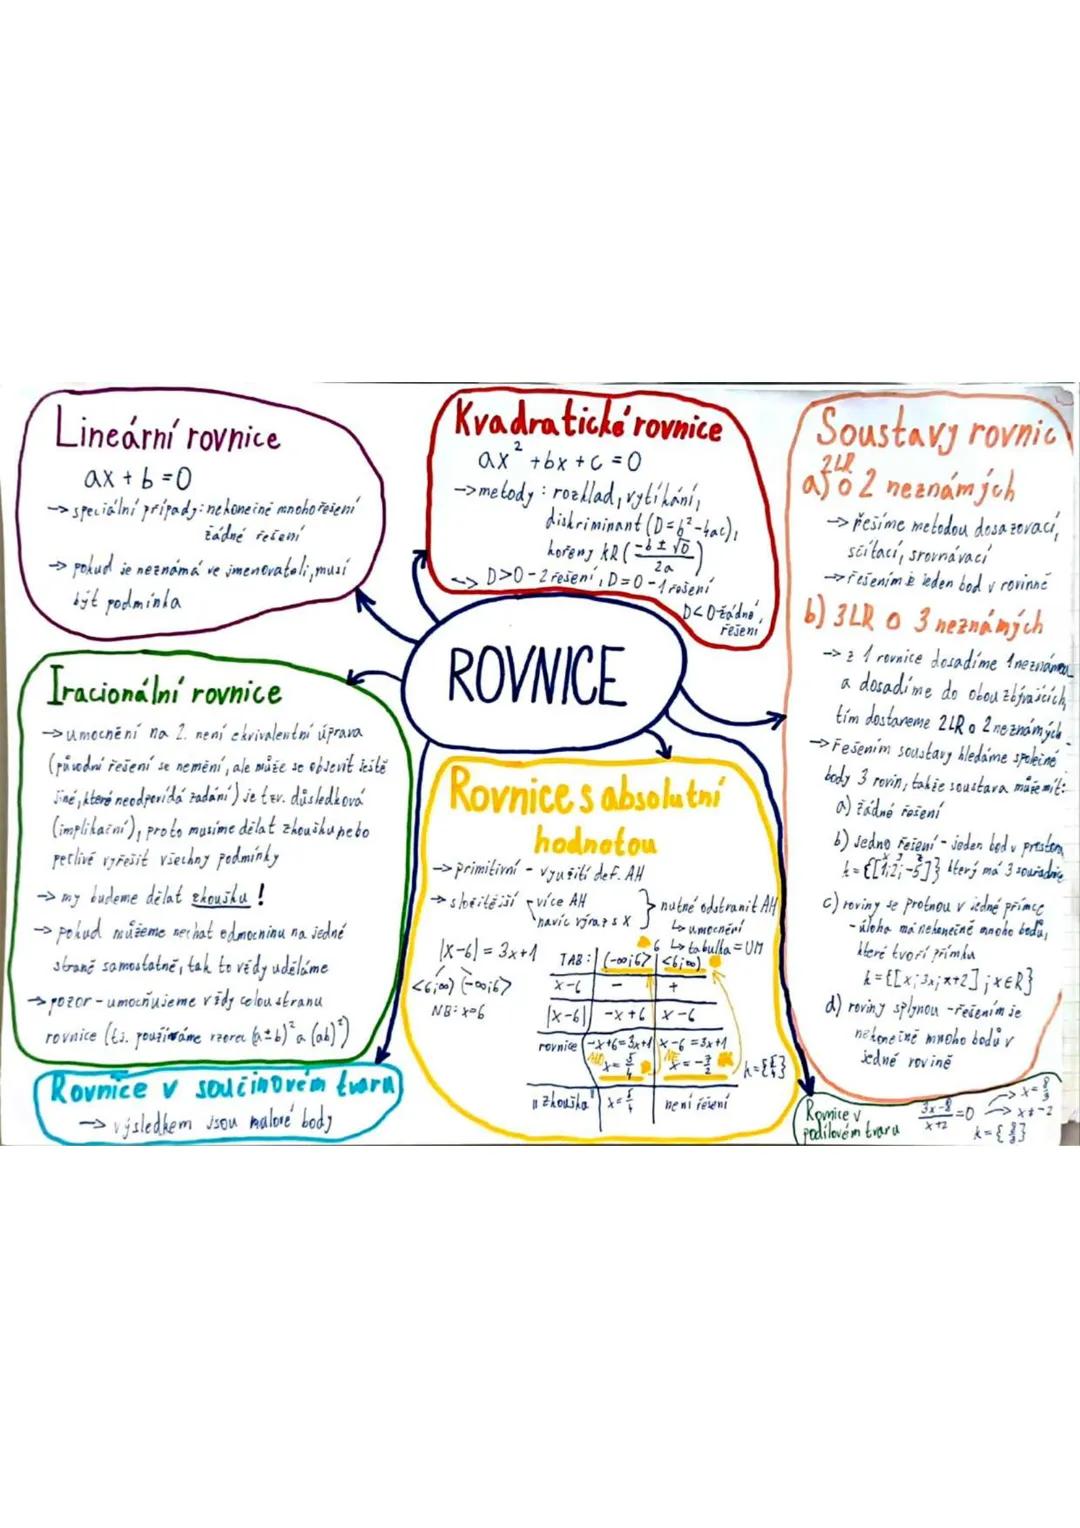 Lineární rovnice
ax + b = 0
→ speciální případy: nekonečně mnoho řešení
žádné řešení
→ pokud je neznámá ve jmenovateli, musí
být podmínka
Kvadratické rovnice
ax² + bx + c = 0
→ metody: rozklad, vytíkání,
diskriminant (D = b² - 4ac),
kořeny KR (-b ± √D / 2a)
↳ D>0 - 2 řešení, D=0 - 1 řešení
D<0 žádné
řešení
Soustavy rovnic
a) 2LR o 2 neznámých
→ řešíme metodou dosazovací,
sčítací, srovnávací
→ řešením je jeden bod v rovinně
b) 3LR o 3 neznámých
→ z 1 rovnice dosadíme 1 neznámou
a dosadíme do obou zbývajících,
tím dostaneme 2LR o 2 neznámých
→ řešením soustavy hledáme společné
body 3 rovin, takže soustava může mít:
a) žádné řešení
b) jedno řešení - jeden bod v prostoru,
x y z
k = {[1; 2; -5]} který má 3 souřadnice
c) roviny se protnou v jedné přímce
- úloha má nekonečně mnoho bodů,
které tvoří přímku
k = {[x; 3x; x+2]; x∈R}
d) roviny splynou - řešením je
nekonečně mnoho bodů v
jedné rovině
ROVNICE
Iracionální rovnice
→ umocnění na 2. není ekvivalentní úprava
(původní řešení se nemění, ale může se objevit ještě
jiné, které neodpovídá zadání) je tzv. důsledková
(implikační), proto musíme dělat zkoušku nebo
pečlivě vyřešit všechny podmínky
→ my budeme dělat zkoušku!
→ pokud můžeme nechat odmocninu na jedné
straně samostatně, tak to vždy uděláme
→ pozor - umocňujeme vždy celou stranu
rovnice (tj. používáme vzorec (a±b)² a (ab)²)
Rovnice v součinovém tvaru
→ výsledkem jsou nulové body
Rovnice s absolutní
hodnotou
→ primitivní - využití def. AH
→ složitější - více AH
navíc výraz s x
nutné odstranit AH
↳ umocnění
↳ tabulka = UM
|x-6| = 3x+1
<6;∞) (-∞;6>
NB: x=6
6
TAB: (-∞;6> <6;∞)
x-6 - +
|x-6| -x+6 x-6
rovnice -x+6=3x+1 x-6=3x+1
ANO x = 5/4 NE x = -7/2
k = {5/4}
"zkouška" x = 5/4 není řešení
Rovnice v
podílovém tvaru
3x-8 / x+2 = 0
→ x = 8/3
→ x ≠ -2
k = {8/3}